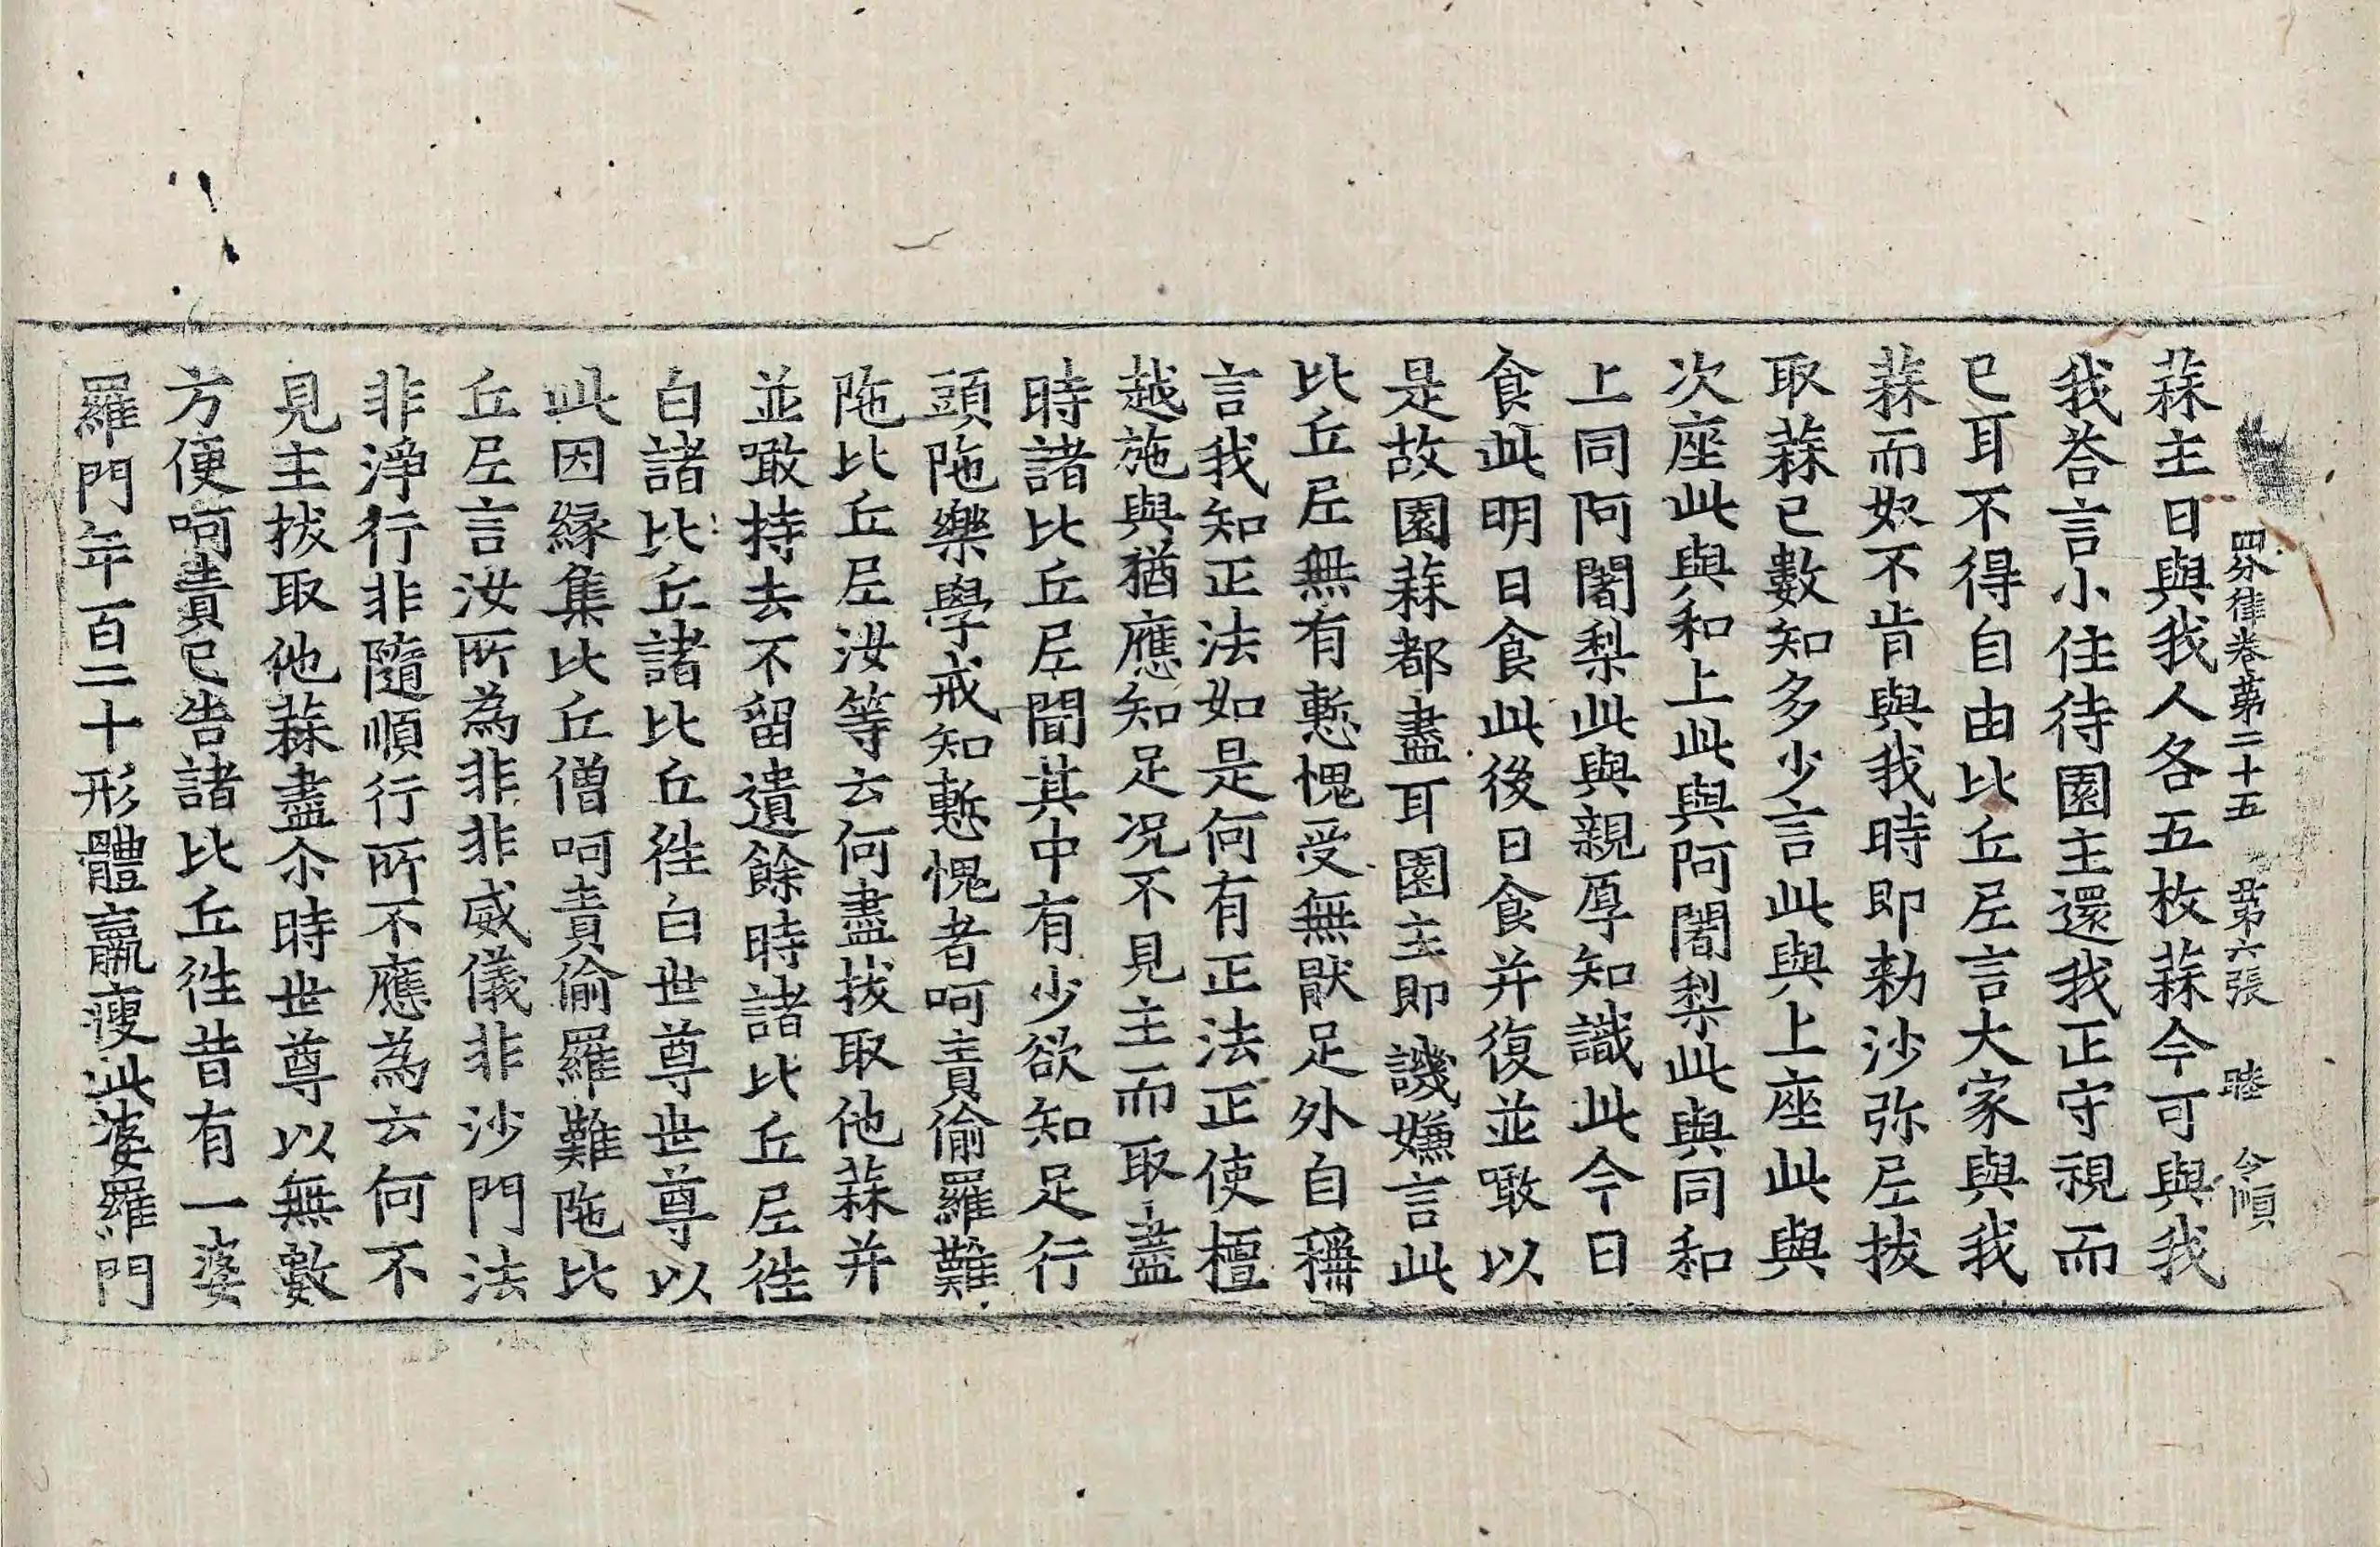 四分律卷第二十五　第六張　睦　令順
蒜主日與我人各五枚蒜今可與我
我荅言小住待園主還我正守視而
已耳不得自由比丘尼言大家與我
蒜而奴不肯與我時即勑沙弥尼拔
取蒜已數知多少言此與上座此與
次座此與和上此與阿闍梨此與同和
上同阿闍梨此與親厚知識此今日
食此明日食此後日食并復並噉以
是故園蒜都盡耳園主即譏嫌言此
比丘尼無有慙愧受無猒足外自稱
言我知正法如是何有正法正使檀
越施與猶應知足况不見主而取盡
時諸比丘尼聞其中有少欲知足行
頭陁樂學戒知慙愧者呵責偷羅難
陁比丘尼汝等云何盡拔取他蒜并
並噉持去不留遺餘時諸比丘尼徃
白諸比丘諸比丘徃白世尊世尊以
此因緣集比丘僧呵責偷羅難陁比
丘尼言汝所為非非威儀非沙門法
非淨行非隨順行所不應為云何不
見主拔取他蒜盡尒時世尊以無數
方便呵責已告諸比丘徃昔有一婆
羅門年百二十形體羸瘦此婆羅門